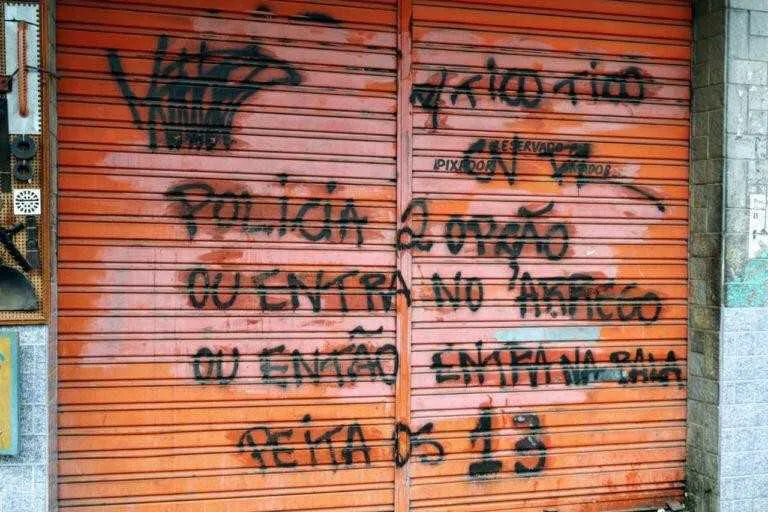 TICO TICO
RESERVADO P/
PIXADOR
POLICIA 2 OPÇÃO
OU ENTRA NO ARREGO
OU ENTÃO ENTRA NA BALA
PEITA OS 13